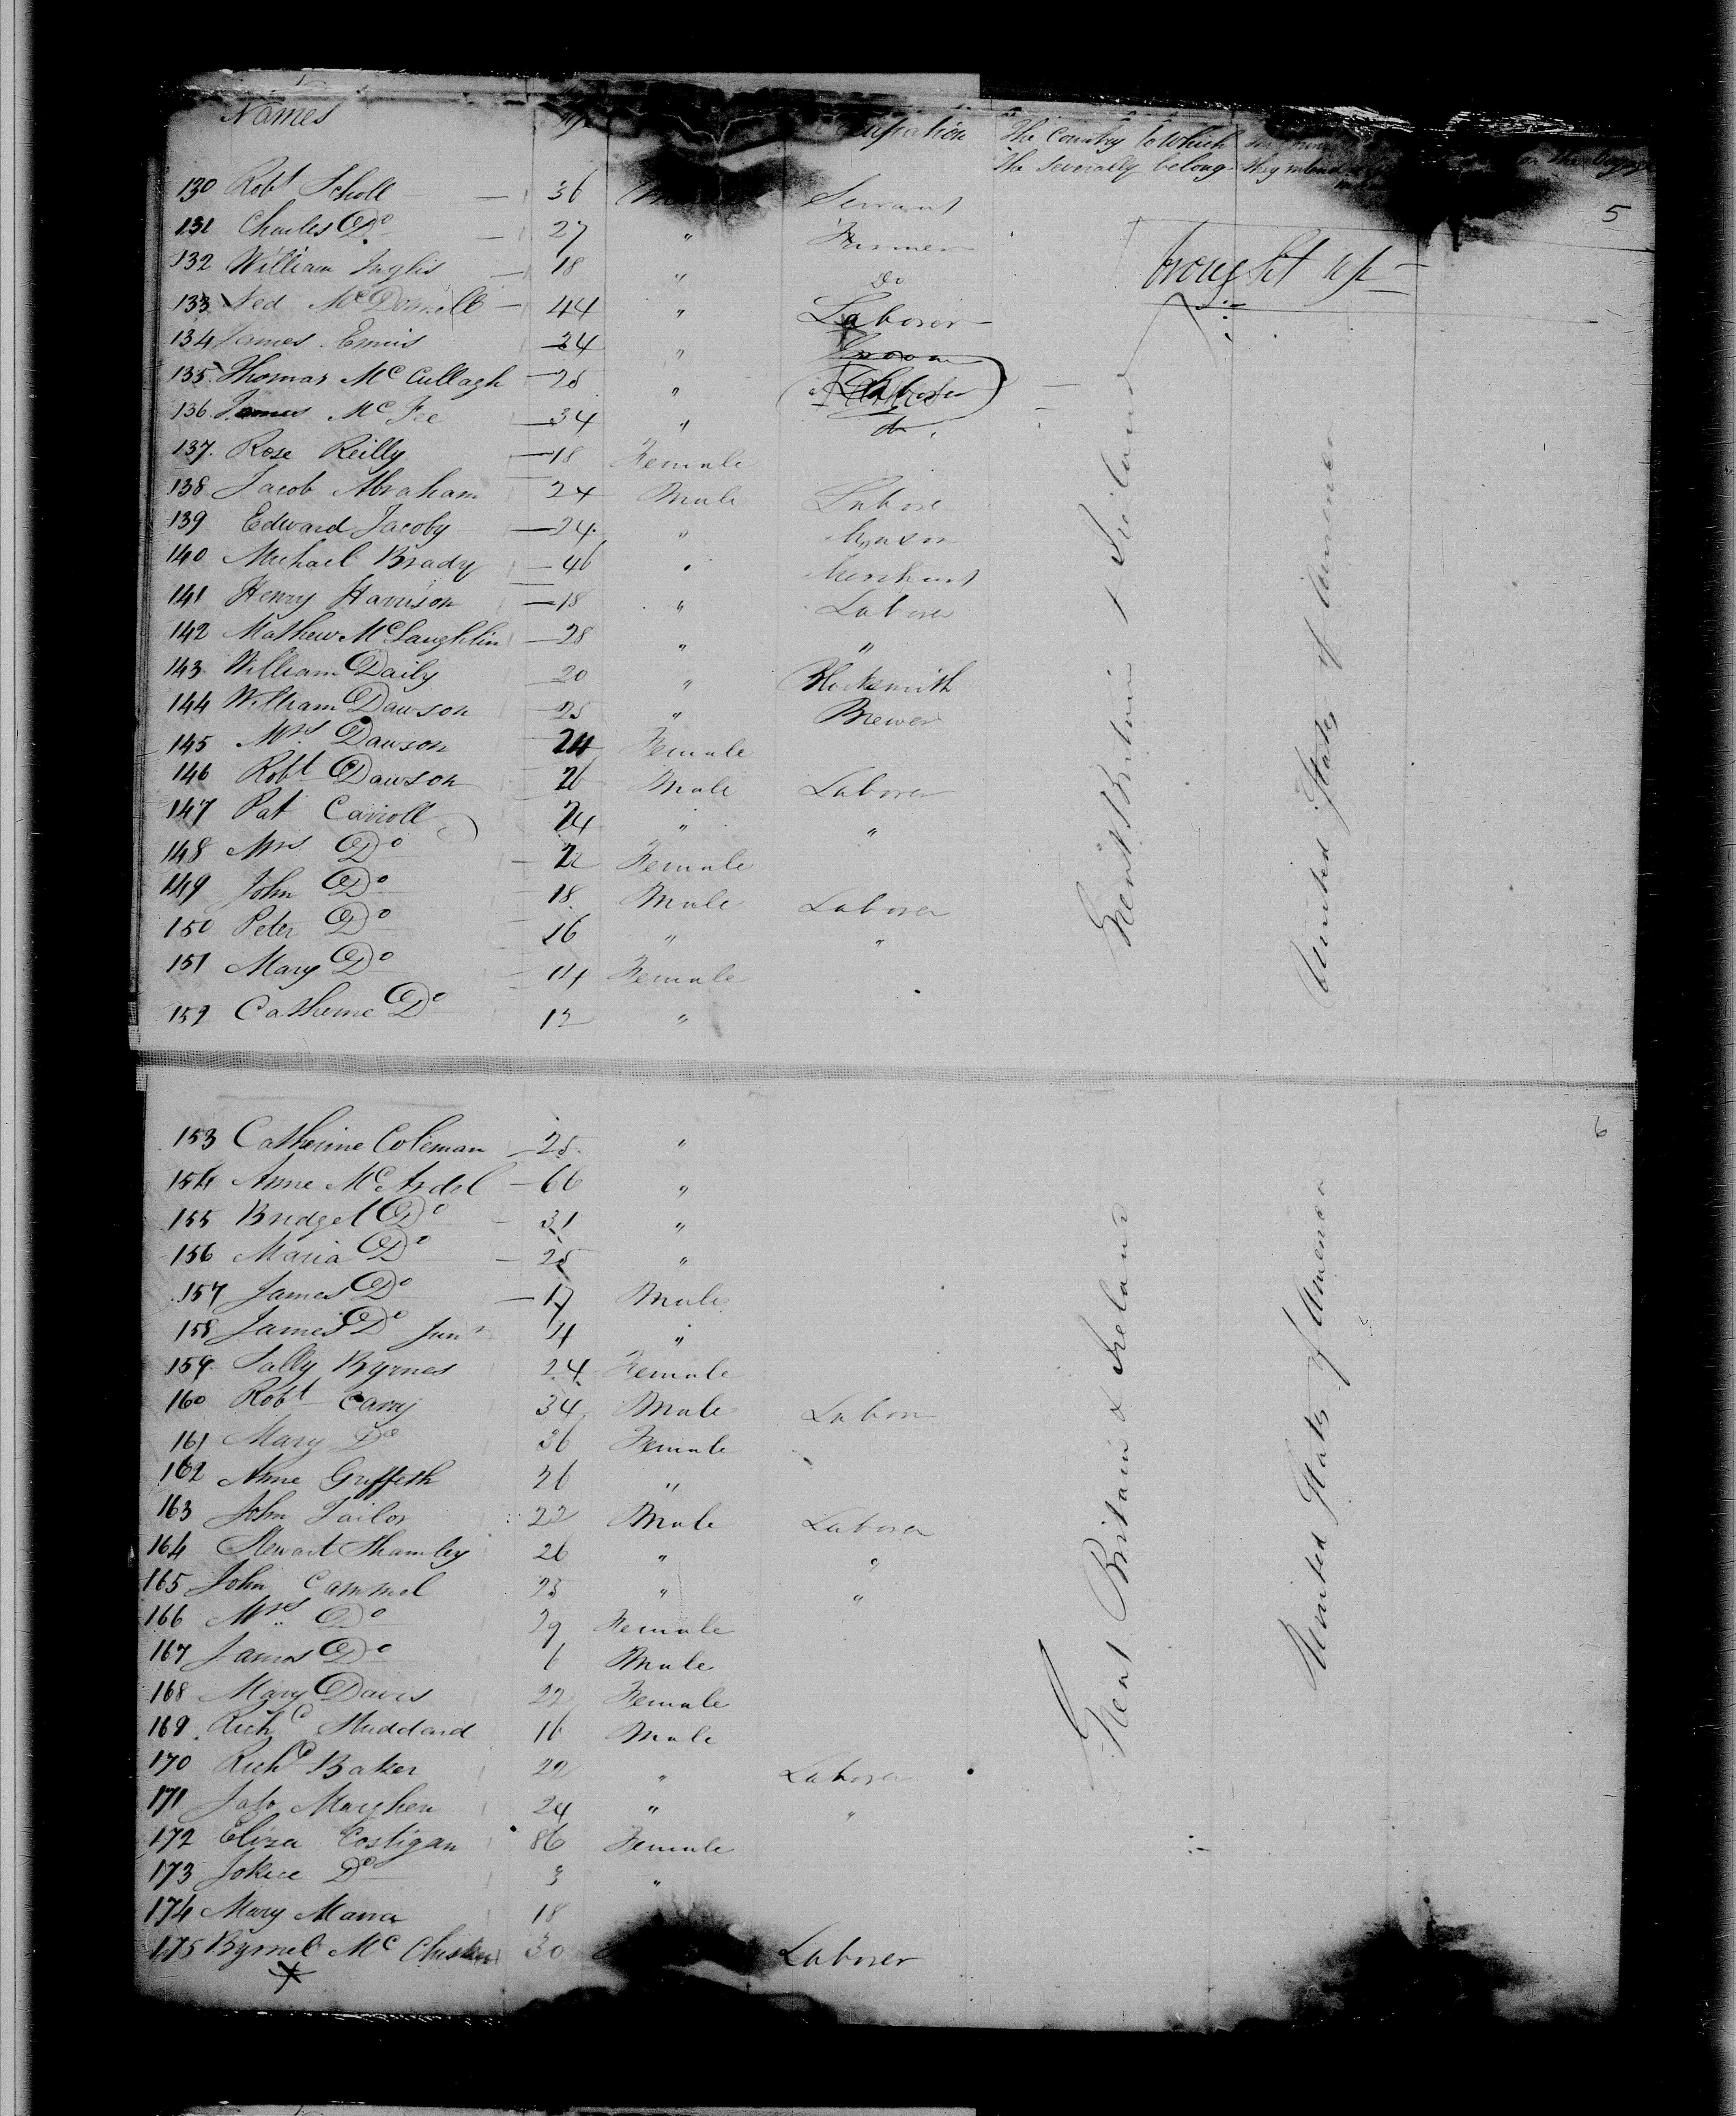 Names Age Occupation The Country to Which
the severally belong they intend on the Voyage
5
130 Robt Scholl 36 Servant
131 Charles Do 27 " Farmer
brought up
132 William Inglis 18 " Do
133 Ned McDonnell 44 " Laborer
134 James Ennis 24 "
135 Thomas McCullagh 25 "
136 James McFee 34 " do
137 Rose Reilly 18 Female
138 Jacob Abraham 24 Male Labore
139 Edward Jacoby 24 " Mason
140 Michael Brady 46 " Merchant
141 Henry Harrison 18 " Laborer
142 Mathew McLaughlin 28 " "
143 William Daily 20 " Blacksmith
144 William Dawson 25 " Brewer
145 Mrs Dawson 24 Female
146 Robt Dawson 26 Male Laborer
147 Pat Carroll 24 " "
148 Mrs Do 22 Female
149 John Do 18 Male Laborer
150 Peter Do 16 " "
151 Mary Do 14 Female
152 Catherine Do 12 "
Great Britain & Ireland
United States of America
6
153 Catherine Coleman 25 "
154 Anne McArdel 66 "
155 Bridget Do 31 "
156 Maria Do 25 "
157 James Do 17 Male
158 James Do Junr 4 "
159 Sally Byrnes 24 Female
160 Robt Carry 34 Male Labor
161 Mary Do 36 Female
162 Anne Griffeth 26 "
163 John Tailor 22 Male Laborer
164 Stewart Thamley 26 " "
165 John Cammel 25 " "
166 Mrs Do 29 Female
167 James Do 6 Male
168 Mary Davis 22 Female
169 Richd Studdard 16 Male
170 Richd Baker 22 " Laborer
171 24 " "
172 Eliza Costigan 86 Female
173 Do 3 "
174 Mary 18
175 Mc 30 Laborer
Great Britain & Ireland
United States of America